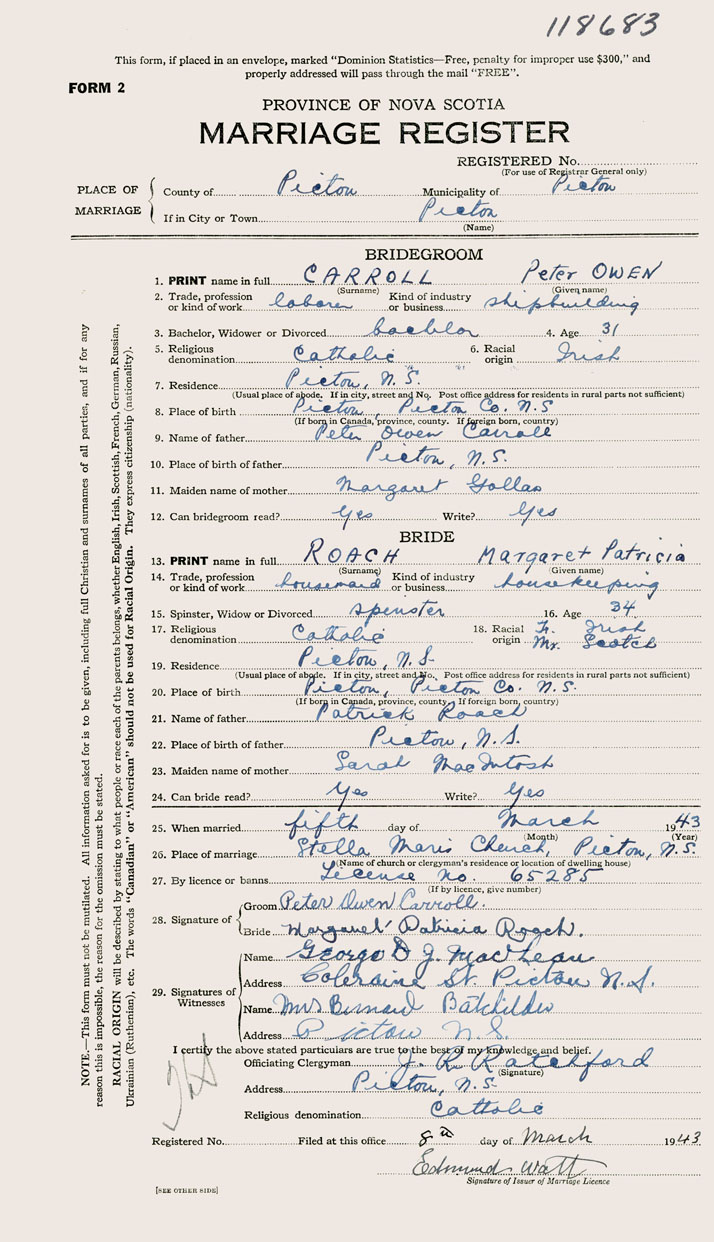 118683
This form, if placed in an envelope, marked "Dominion Statistics—Free, penalty for improper use $300," and
properly addressed will pass through the mail "FREE".
FORM 2
PROVINCE OF NOVA SCOTIA
MARRIAGE REGISTER
REGISTERED No.
(For use of Registrar General only)
PLACE OF MARRIAGE
County of Pictou Municipality of Pictou
If in City or Town Pictou
(Name)
BRIDEGROOM
1. PRINT name in full CARROLL Peter OWEN
(Surname) (Given name)
2. Trade, profession or kind of work laborer Kind of industry or business shipbuilding
3. Bachelor, Widower or Divorced bachlor 4. Age 31
5. Religious denomination Catholic 6. Racial origin Irish
7. Residence Pictou, N.S.
(Usual place of abode. If in city, street and No. Post office address for residents in rural parts not sufficient)
8. Place of birth Pictou, Pictou Co. N.S
(If born in Canada, province, county. If foreign born, country)
9. Name of father Peter Owen Carroll
10. Place of birth of father Pictou, N.S.
11. Maiden name of mother Margaret Gollas
12. Can bridegroom read? Yes Write? Yes
BRIDE
13. PRINT name in full ROACH Margaret Patricia
(Surname) (Given name)
14. Trade, profession or kind of work housemaid Kind of industry or business housekeeping
15. Spinster, Widow or Divorced spenster 16. Age 34
17. Religious denomination Catholic 18. Racial origin Fr. Irish
Mr. Scotch
19. Residence Pictou, N.S.
(Usual place of abode. If in city, street and No. Post office address for residents in rural parts not sufficient)
20. Place of birth Pictou, Pictou Co. N.S.
(If born in Canada, province, county. If foreign born, country)
21. Name of father Patrick Roach
22. Place of birth of father Pictou, N.S.
23. Maiden name of mother Sarah MacIntosh
24. Can bride read? Yes Write? Yes
25. When married fifth day of March 1943
(Month) (Year)
26. Place of marriage Stella Maris Church, Pictou, N.S.
(Name of church or clergyman's residence or location of dwelling house)
27. By licence or banns License no. 65285
(If by licence, give number)
28. Signature of
Groom Peter Owen Carroll.
Bride Margaret Patricia Roach.
29. Signatures of Witnesses
Name George D J. MacLeau
Address Coleraine St. Pictou N.S.
Name Mrs Bernard Batchilder
Address Pictou N.S.
I certify the above stated particulars are true to the best of my knowledge and belief.
Officiating Clergyman J. R. Ratchford
(Signature)
Address Pictou, N.S
Religious denomination Catholic
Registered No. Filed at this office 8th day of March 1943
Edmund Watt
Signature of Issuer of Marriage Licence
[SEE OTHER SIDE]
NOTE.—This form must not be mutilated. All information asked for is to be given, including full Christian and surnames of all parties, and if for any
reason this is impossible, the reason for the omission must be stated.
RACIAL ORIGIN will be described by stating to what people or race each of the parents belongs, whether English, Irish, Scottish, French, German, Russian,
Ukrainian (Ruthenian), etc. The words "Canadian" or "American" should not be used for Racial Origin. They express citizenship (nationality).